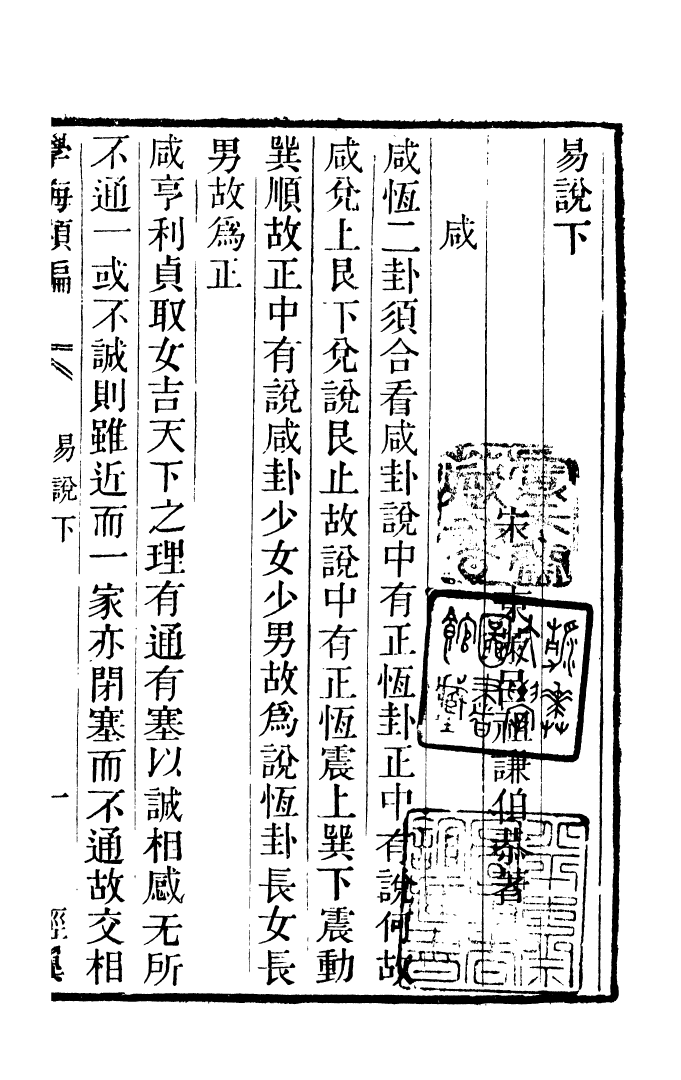 易說下
宋　東萊呂祖謙伯恭著
咸
咸恆二卦須合看咸卦說中有正恆卦正中有說何故
咸兌上艮下兌說艮止故說中有正恆震上巽下震動
巽順故正中有說咸卦少女少男故爲說恆卦長女長
男故爲正
咸亨利貞取女吉天下之理有通有塞以誠相感无所
不通一或不誠則雖近而一家亦閉塞而不通故交相
學海類編
易說下
一
經翼